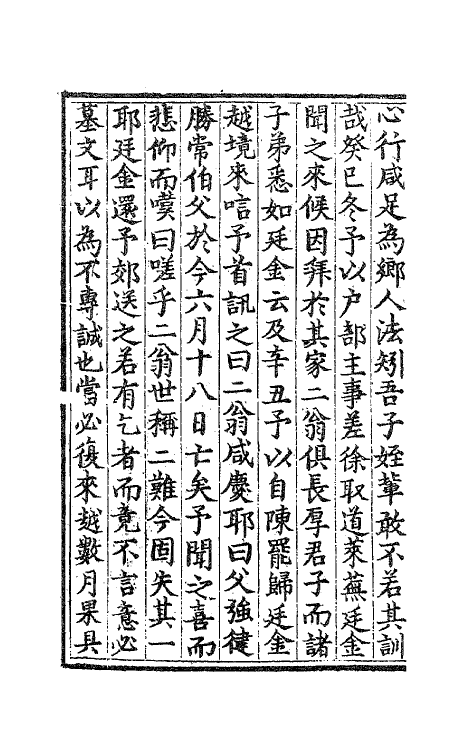 心行咸足為鄉人法矧吾子姪輩敢不若其訓
哉癸巳冬予以户部主事差徐取道萊蕪廷金
聞之來候因拜於其家二翁俱長厚君子而諸
子弟悉如廷金云及辛丑予以自陳罷歸廷金
越境來唁予首訊之曰二翁咸慶耶曰父強健
勝常伯父於今六月十八日亡矣予聞之喜而
悲仰而嘆曰嗟乎二翁世稱二難今固失其一
耶廷金還予郊送之若有乞者而竟不言意必
墓文耳以為不專誠也當必復來越數月果具